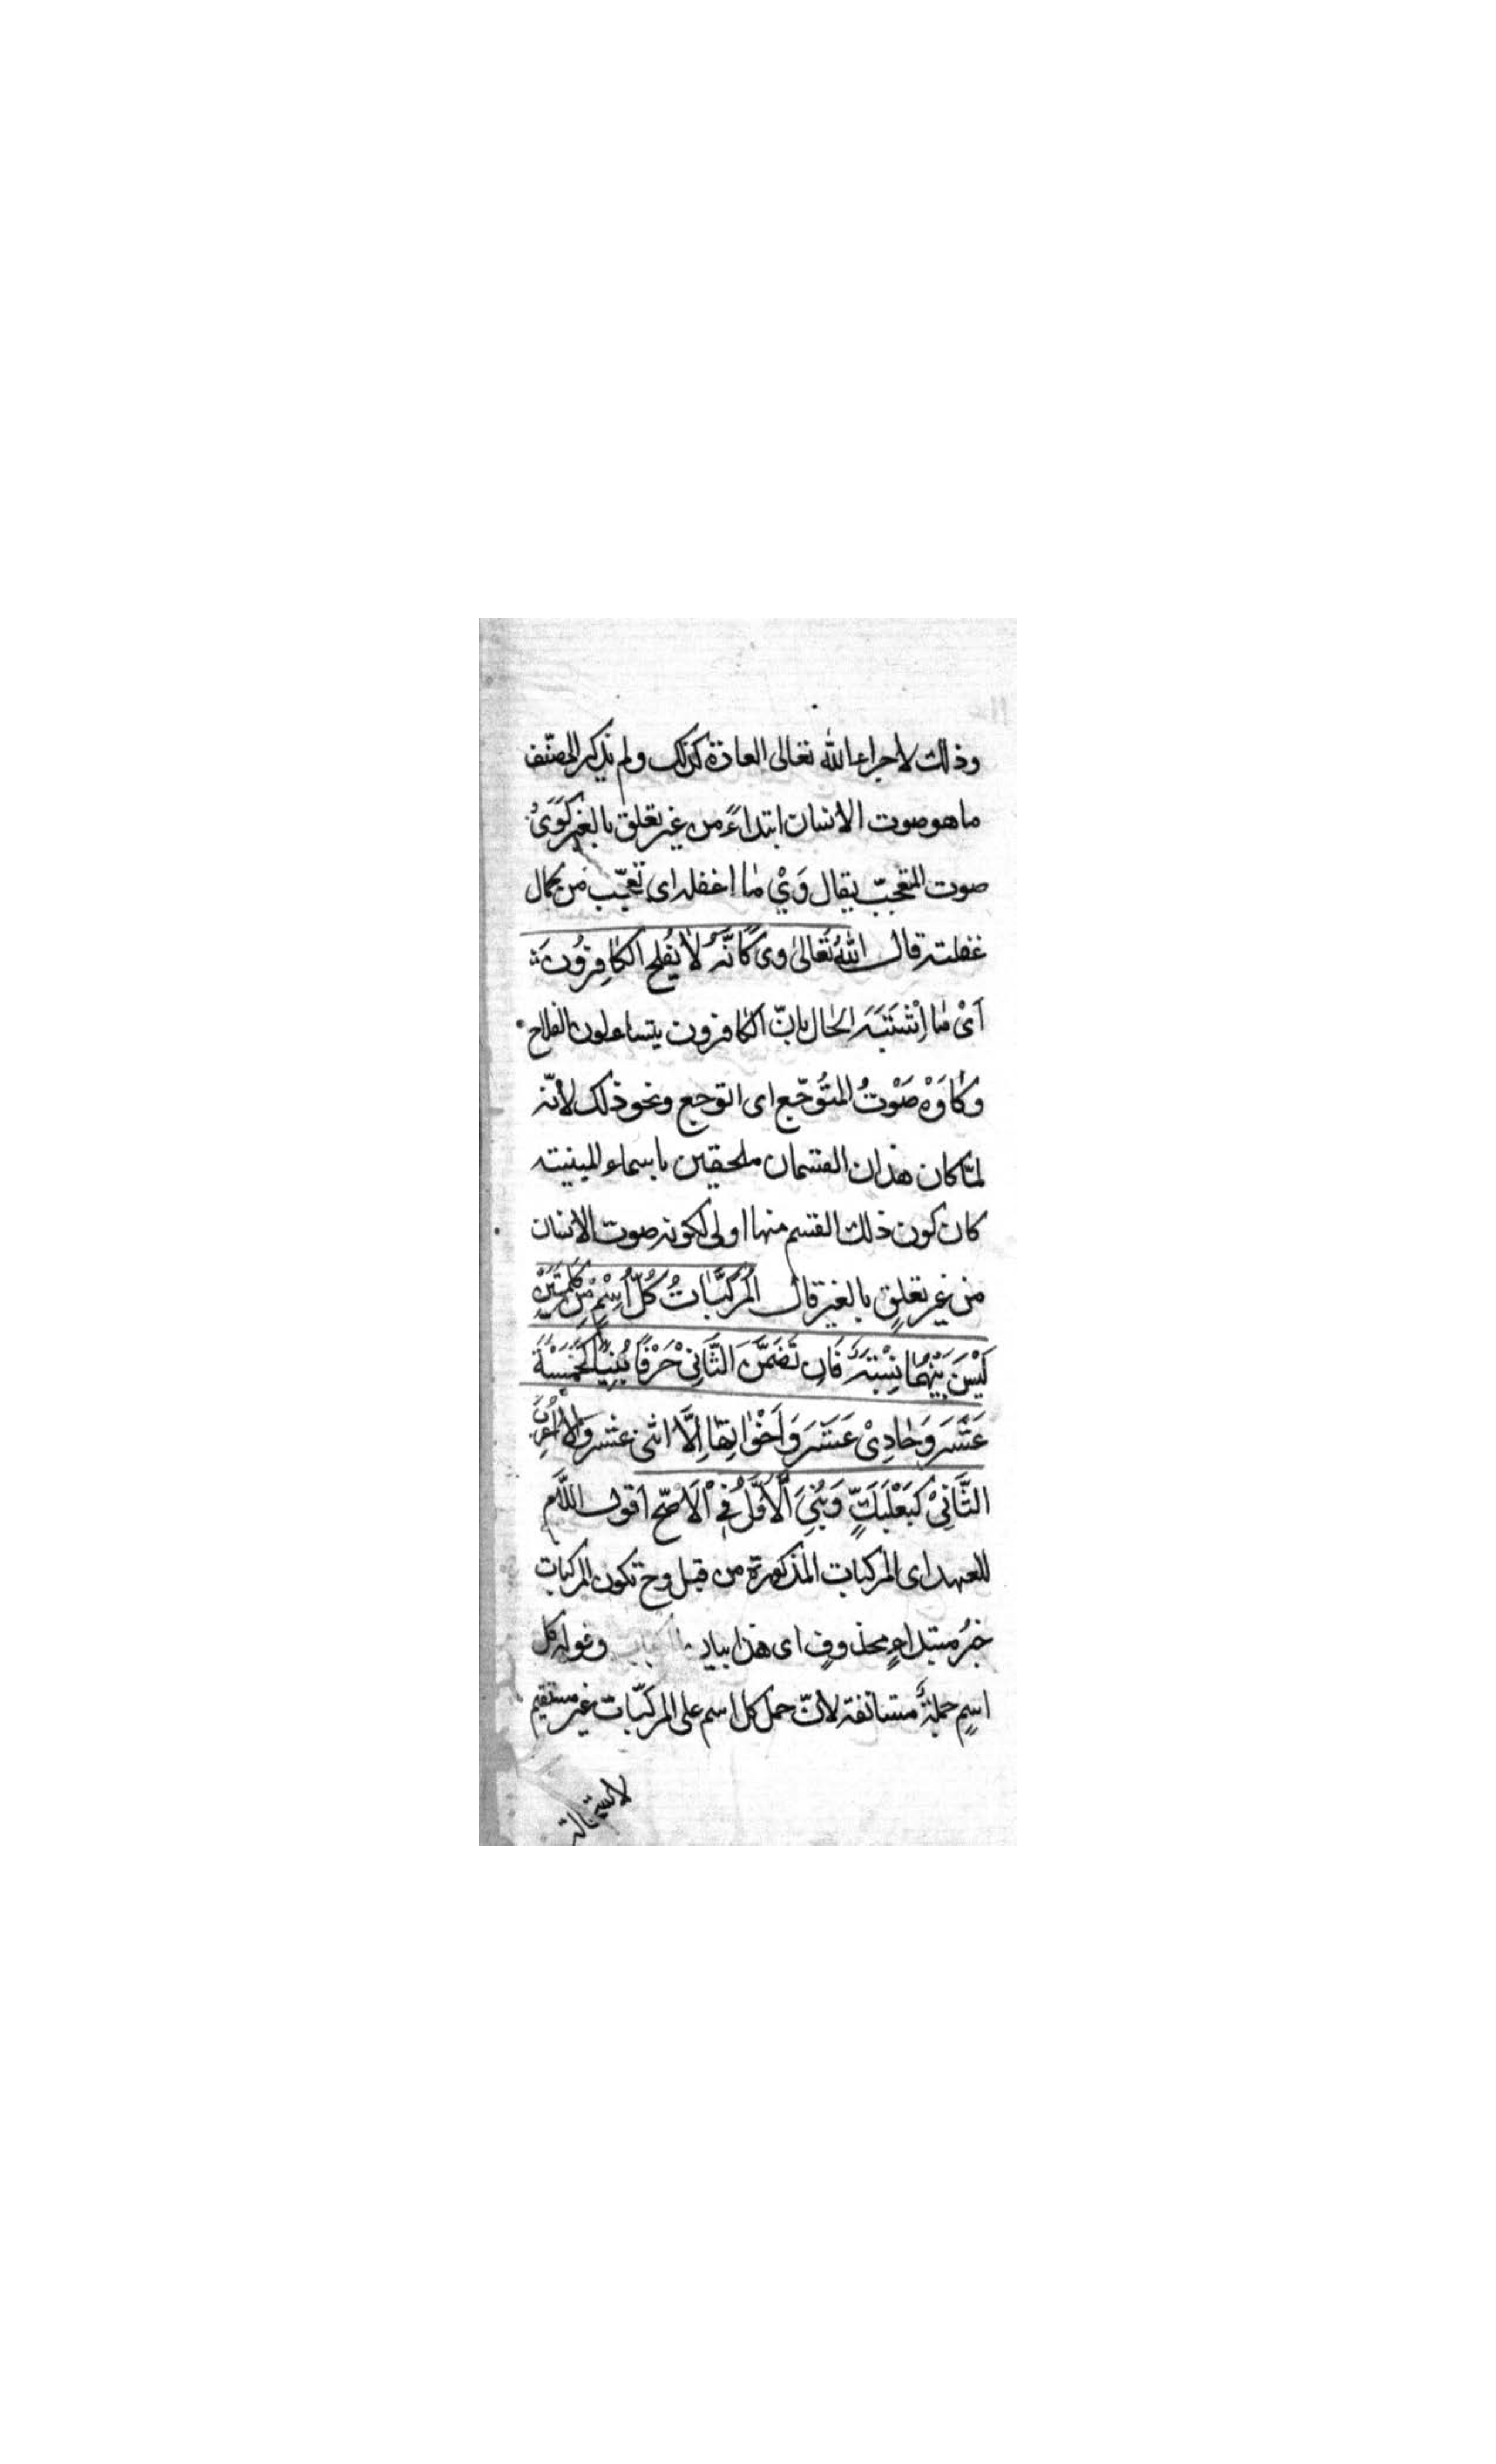 وذلك لاجراء الله تعالى العادة كذلك ولم يذكر المصنّف
ما هو صوت الانسان ابتداءً من غير تعلق بالغير كَوَىْ
صوت المتعجّب يقال وَيْ مٰا اغفله اى تعجّب من كمال
غفلته قال اللهُ تَعٰالىٰ وى كَاَنَّهُ لاٰ يُفْلِحُ الكٰافِرُونَ
اَىْ مٰا اِشْتَبَهَ الحٰال بانّ الكٰافرون يتساءلون الفلاح
وكٰاوَهْ صَوْتُ المتُوَجّع اى اتوجع ونحو ذلك لانّه
لمّا كان هذان القسمان ملحقين باسماء المبنيته
كان كون ذلك القسم منها اولى لكونه صوت الانسان
من غير تعلقٍ بالغير قال اَلْمُرَكَّبٰاتُ كُلُّ اِسْمٍ مِنْ كَلِمَتَيْنِ
لَيْسَ بَيْنَهُمٰا نِسْبَتَهٌ فَاِن تَضَمَّنَ الثَّانِىْ حَرْفًا بُنِيٰا كَخَمْسَةَ
عَشَرَ وَحٰادِىْ عَشَرَ وَاَخَوٰاتِهٰا اِلَّا اثنى عشر وَاِلاّٰ اُعْرِبَ
الثَّانِىْ كَبَعْلَبَكَّ وَبُنِىَ اْلاَوَّلُ فِى اْلاَصَحّ اقول اللَّام
للعهد اى المركبات المذكورة من قبل وح تكون المركبات
خبرُ مبتداءٍ محذوفٍ اى هذا وقوله كل
اسمٍ جملةٌ مستانفة لانّ حمل كل اسم على المركبّات غير مستقيم